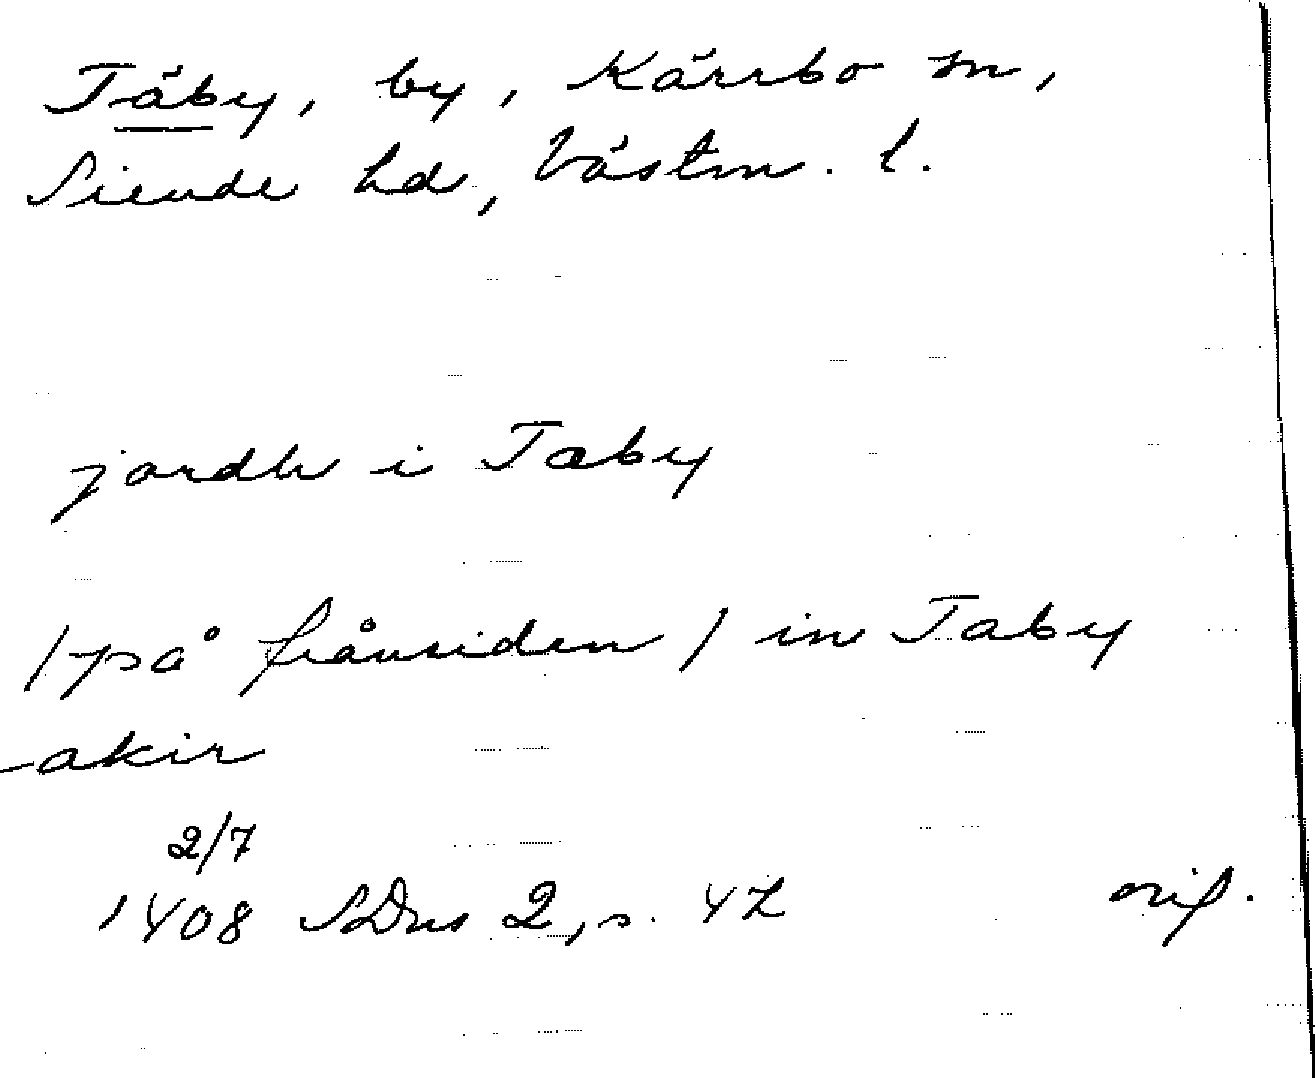 Täby, by, Kärrbo sn,
Siende hd, Västm. l.
jordh i Taby
/på frånsidan/ in Taby
akir
2/7
1408 SDns 2, s. 42 orig.